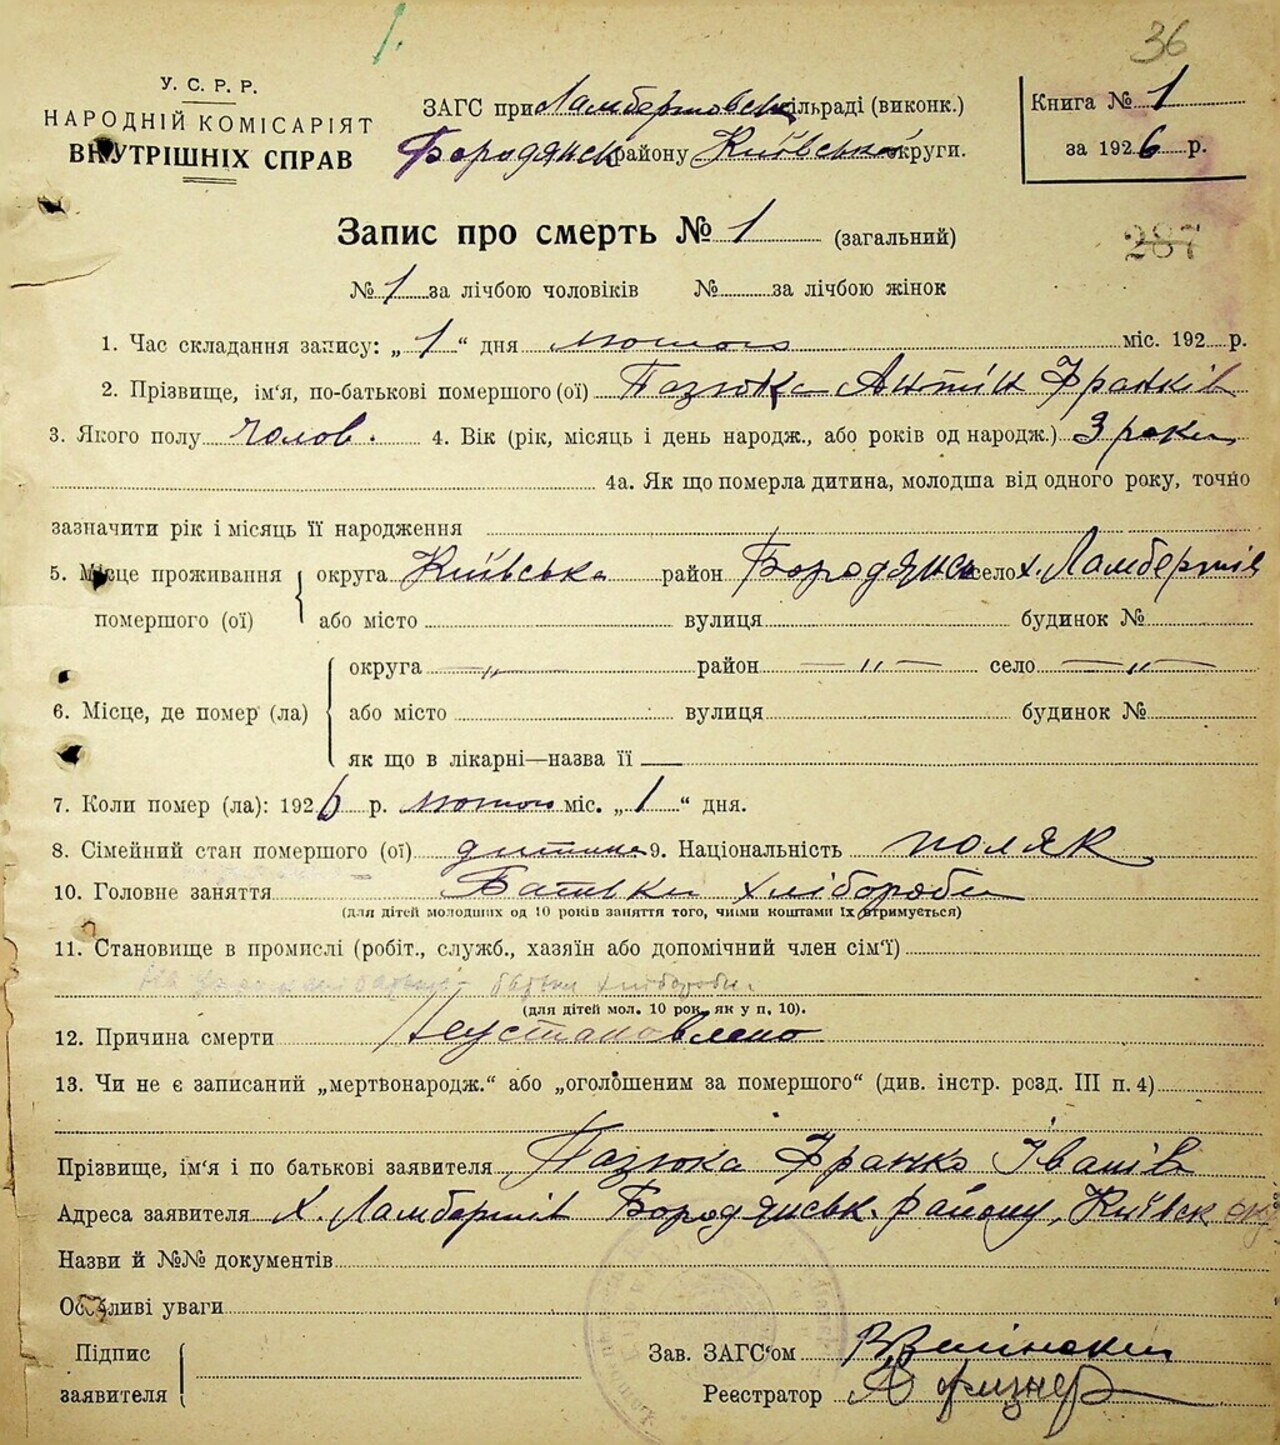 36
У. С. Р. Р.
НАРОДНІЙ КОМІСАРІЯТ
ВНУТРІШНІХ СПРАВ
ЗАГС при Ламбертовськ сільраді (виконк.)
Бородянськ району Київської округи.
Книга № 1
за 1926 р.
Запис про смерть № 1 (загальний)
287
№ 1 за лічбою чоловіків № за лічбою жінок
1. Час складання запису: „ 1 “ дня лютого міс. 192 р.
2. Прізвище, ім‘я, по-батькові помершого (ої) Пазюка Антін Франків
3. Якого полу чолов. 4. Вік (рік, місяць і день народж., або років од народж.) 3 роки
4а. Як що померла дитина, молодша від одного року, точно
зазначити рік і місяць її народження
5. Місце проживання помершого (ої) округа Київська район Бородянськ село х. Ламбертів
або місто вулиця будинок №
6. Місце, де помер (ла) округа —〃— район —〃— село —〃—
або місто вулиця будинок №
як що в лікарні—назва її —
7. Коли помер (ла): 1926 р. лютого міс. „ 1 “ дня.
8. Сімейний стан помершого (ої) дитина 9. Національність поляк
10. Головне заняття Батьки хлібороби
(для дітей молодших од 10 років заняття того, чиїми коштами їх втримується)
11. Становище в промислі (робіт., служб., хазяїн або допомічний член сім‘ї)
батьки хлібороби
(для дітей мол. 10 рок. як у п. 10).
12. Причина смерти Неустановлено
13. Чи не є записаний „мертвонародж.“ або „оголошеним за помершого“ (див. інстр. розд. III п. 4)
Прізвище, ім‘я і по батькові заявителя Пазюка Франко Іванів
Адреса заявителя х. Ламбертів Бородянськ. району, Київськ окр
Назви й №№ документів
Особливі уваги
Підпис заявителя
Зав. ЗАГС‘ом
Реєстратор